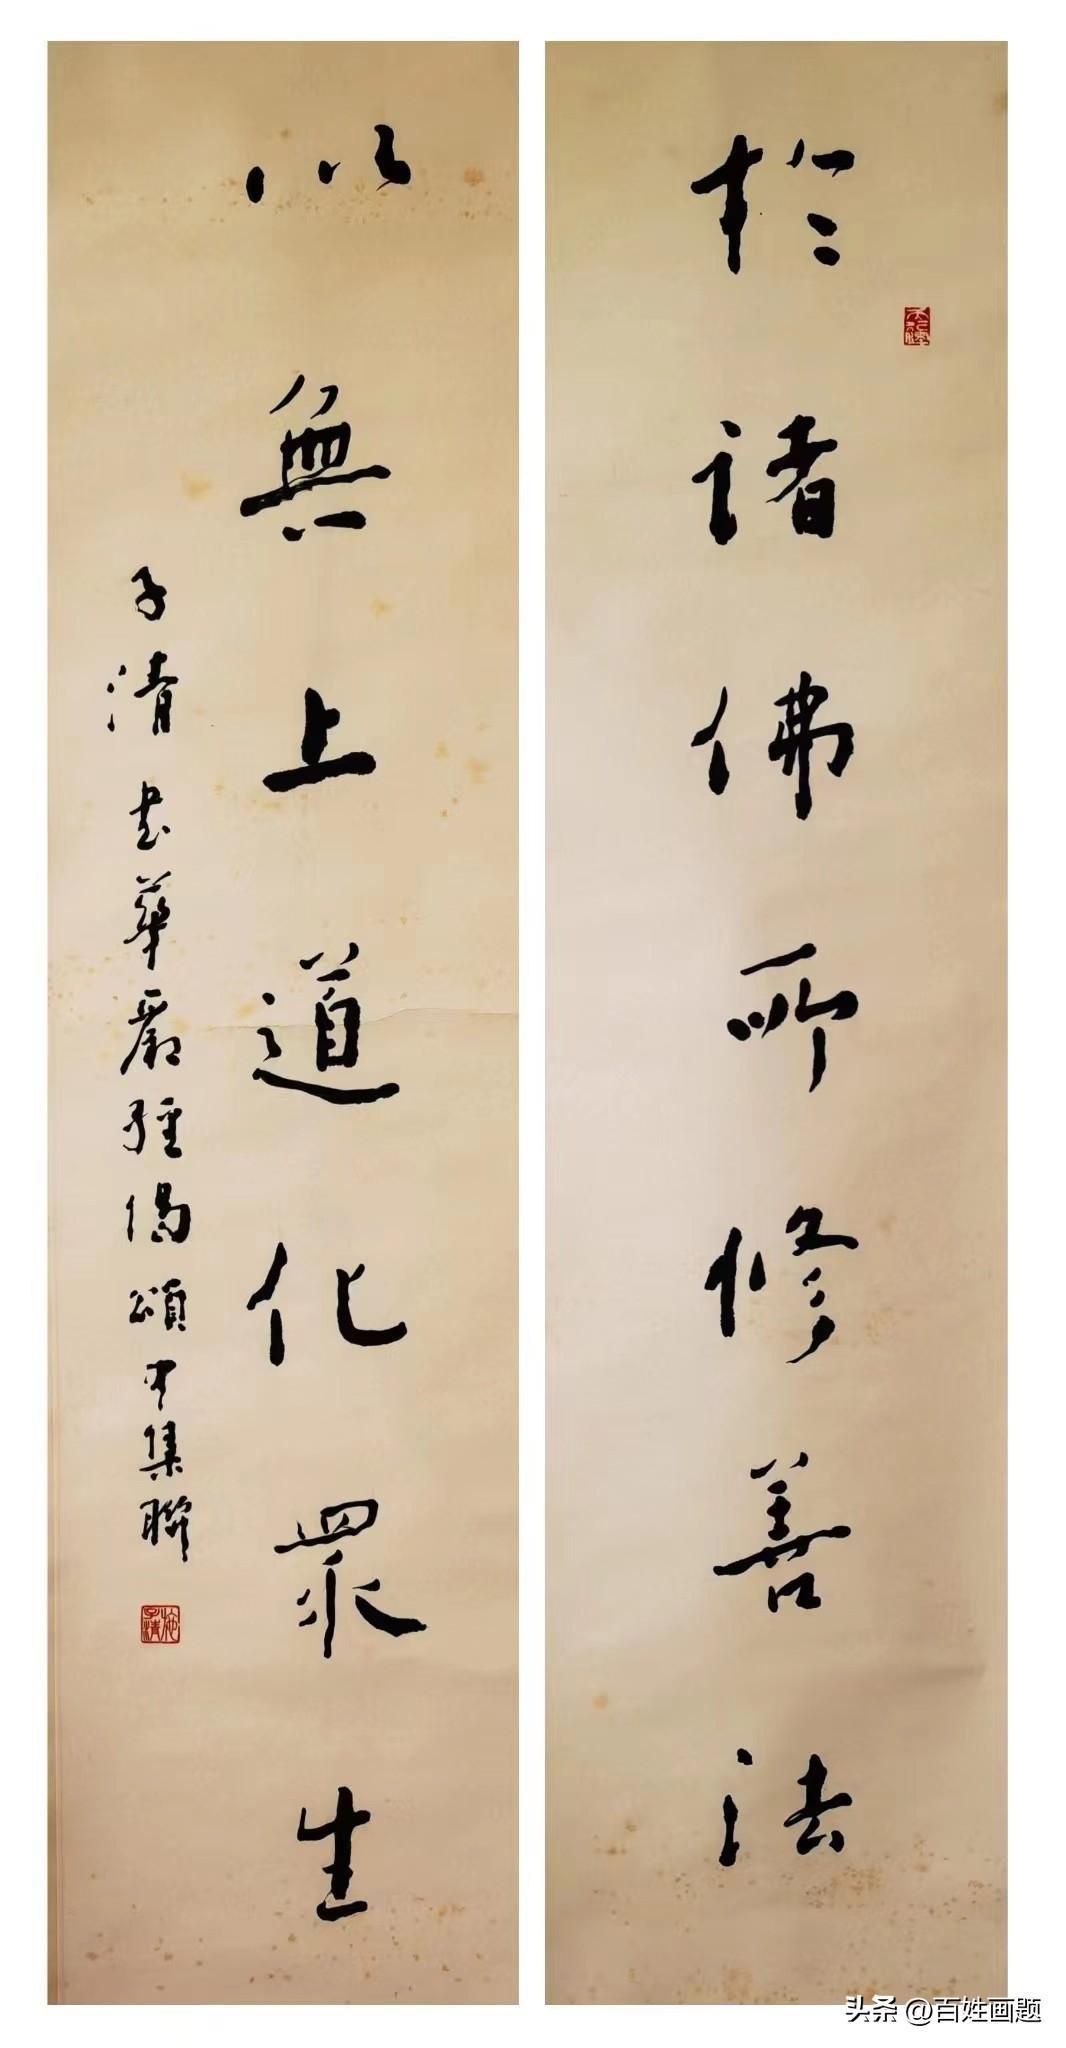 於諸佛所修善法
以無上道化眾生
子清書華嚴經偈頌中集聯
施子清
头条 @百姓画题